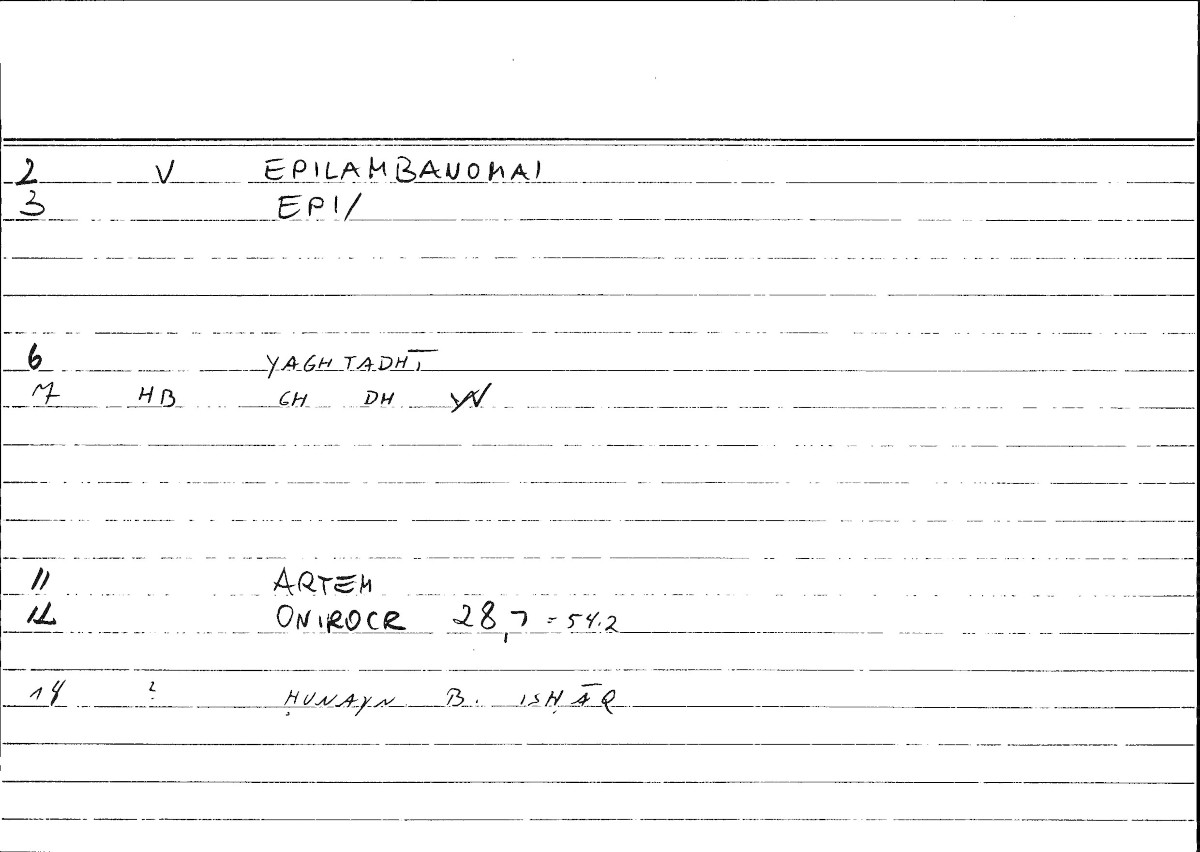 2 V EPILAMBANOMAI
3 EPI/
6 YAGHTADHĪ
7 HB GH DH W
11 ARTEM
12 ONIROCR 28,7 = 54.2
14 ? ḤUNAYN B. ISḤĀQ